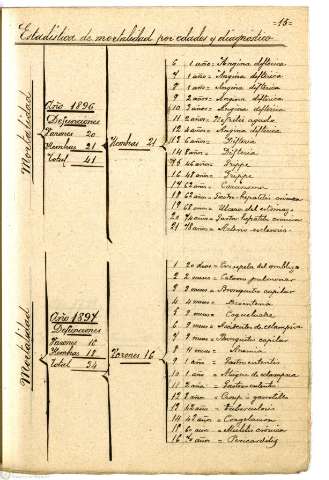 =15=
Estadística de mortalidad por edades y diagnóstico
Mortalidad
Año 1896
Defunciones
Varones 20
Hembras 21
Total 41
Hembras 21
6 1 año = Angina diftérica
7 1 año = Angina diftérica
8 1 año = Angina diftérica
9 2 años = Angina diftérica
10 3 años = Angina diftérica
11 2 años = Nefritis aguda
12 4 años = Angina diftérica
13 6 años = Difteria
14 8 años = Difteria
15 46 años = Grippe
16 48 años = Grippe
17 52 años = Carcinoma
18 62 años = Gastro-hepatitis crónica
19 68 años = Ulcera del estómago
20 74 años = Gastro hepatitis crónica
21 78 años = Asterio-esclerosis
Mortalidad
Año 1897
Defunciones
Varones 16
Hembras 18
Total 34
Varones 16
1 20 días = Erisipela del ombligo
2 2 meses = Catarro pulmonar
3 3 meses = Bronquitis capilar
4 4 meses = Disenteria
5 5 meses = Coqueluche
6 9 meses = de eclampsia
7 9 meses = Bronquitis capilar
8 9 meses =
9 1 año = Gastro enteritis
10 1 año = Ataque de eclampsia
11 2 años = Gastro enteritis
12 3 años = Croup ó garrotillo
13 12 años = Tuberculosis
14 42 años = Congelacion
15 60 años = Mielitis crónica
16 70 años = Pericarditis